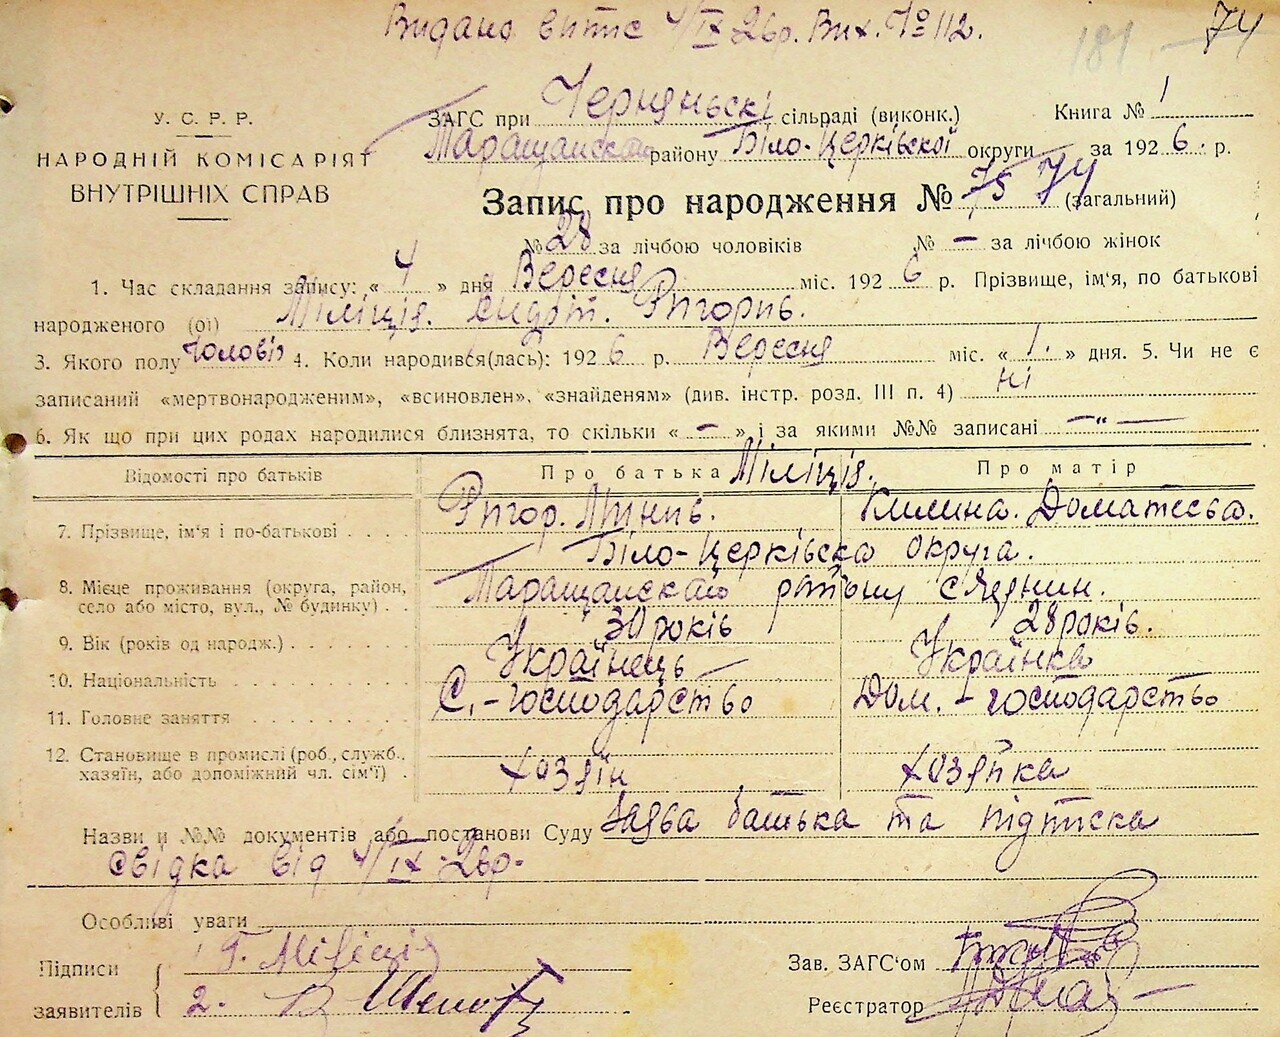 Видано витис 4/IX 26р. Вих. № 112.
181 74
У. С. Р. Р.
НАРОДНІЙ КОМІСАРІЯТ
ВНУТРІШНІХ СПРАВ
ЗАГС при сільраді (виконк.) Книга № 1
Таращанском району Біло-Церківської округи за 1926. р.
Запис про народження № 75 74 (загальний)
№ 28 за лічбою чоловіків № — за лічбою жінок
1. Час складання запису: « 4 » дня Вересня міс. 1926 р. Прізвище, ім'я, по батькові
народженого (ої) Міліція. Ригорив.
3. Якого полу Чоловіч 4. Коли народився(лась): 1926 р. Вересня міс. « 1. » дня. 5. Чи не є
записаний «мертвонародженим», «всиновлен», «знайденям» (див. інстр. розд. III п. 4) ні
6. Як що при цих родах народилися близнята, то скільки « – » і за якими №№ записані –"—
Відомості про батьків Про батька Міліція. Про матір
7. Прізвище, ім'я і по-батькові . . . . Ригор. Килина. Доматєева.
Біло-Церківска округа.
8. Місце проживання (округа, район, село або місто, вул., № будинку) . . Таращанском району
9. Вік (років од народж.) . . . . . . 30 років 28 років.
10. Національність . . . . . . . Українець Українка
11. Головне заняття . . . . . . . . С.-господарство Дом.-господарство
12. Становище в промислі (роб., службов., хазяїн, або допоміжний чл. сім'ї) . хозяїн хозяйка
Назви и №№ документів або постанови Суду Заява батька та підписка
свідка від 4/IX-26р.
Особливі уваги
Підписи
заявителів
1 Г. Міліція
2.
Зав. ЗАГС'ом
Реєстратор